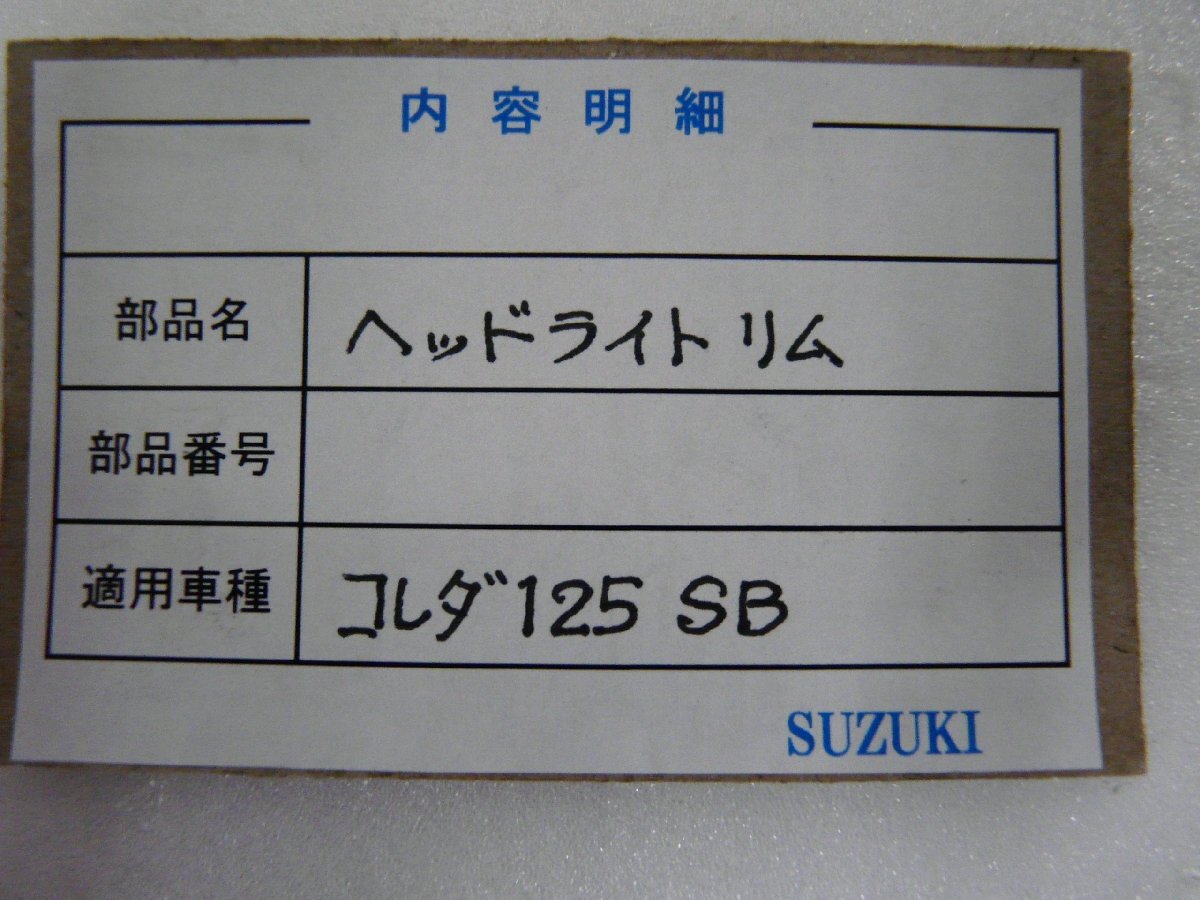 内容明細
部品名 ヘッドライト リム
部品番号
適用車種 コレダ125 SB
SUZUKI